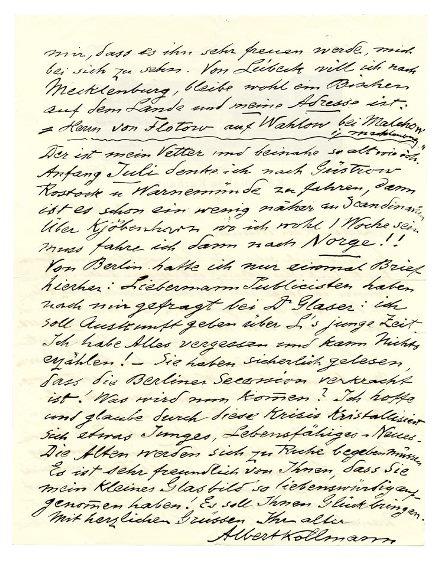 mir, dass es ihn sehr freuen werde, mich
bei sich zu sehn. Von Lübeck will ich nach
Mecklenburg, bleibe wohl ein Bischen
auf dem Lande und meine Adresse ist:
= Herrn von Flotow auf Wahlow bei Malchow
i/ Mecklenburg "
Der ist mein Vetter und beinahe so alt wie ich.
Anfang Juli denke ich nach Güstrow
Rostock u Warnemünde zu fahren, dann
ist es schon ein wenig näher zu Scandinavien
über Kjöbenhavn, wo ich wohl 1 Woche sein
muss fahre ich dann nach Norge!!
Von Berlin hatte ich nur einmal Brief
hierher: Liebermann Publicisten haben
nach mir gefragt bei Dr Glaser: ich
soll Auskunft geben über L's junge Zeit
Ich habe Alles vergessen und kann Nichts
erzählen! – Sie haben sicherlich gelesen,
dass die Berliner Secession verkracht
ist! Was wird nun kommen? Ich hoffe
und glaube durch diese Krisis Kristallisiert
sich etwas Junges, Lebensfähiges – Neues.
Die Alten werden sich zu Ruhe begeben müssen
Es ist sehr freundlich von Ihnen, dass Sie
mein kleines Glasbild so liebenswürdig auf-
genommen haben. Es soll Ihnen Glück bringen.
Mit herzlichen Grüssen Ihr alter
Albert Kollmann